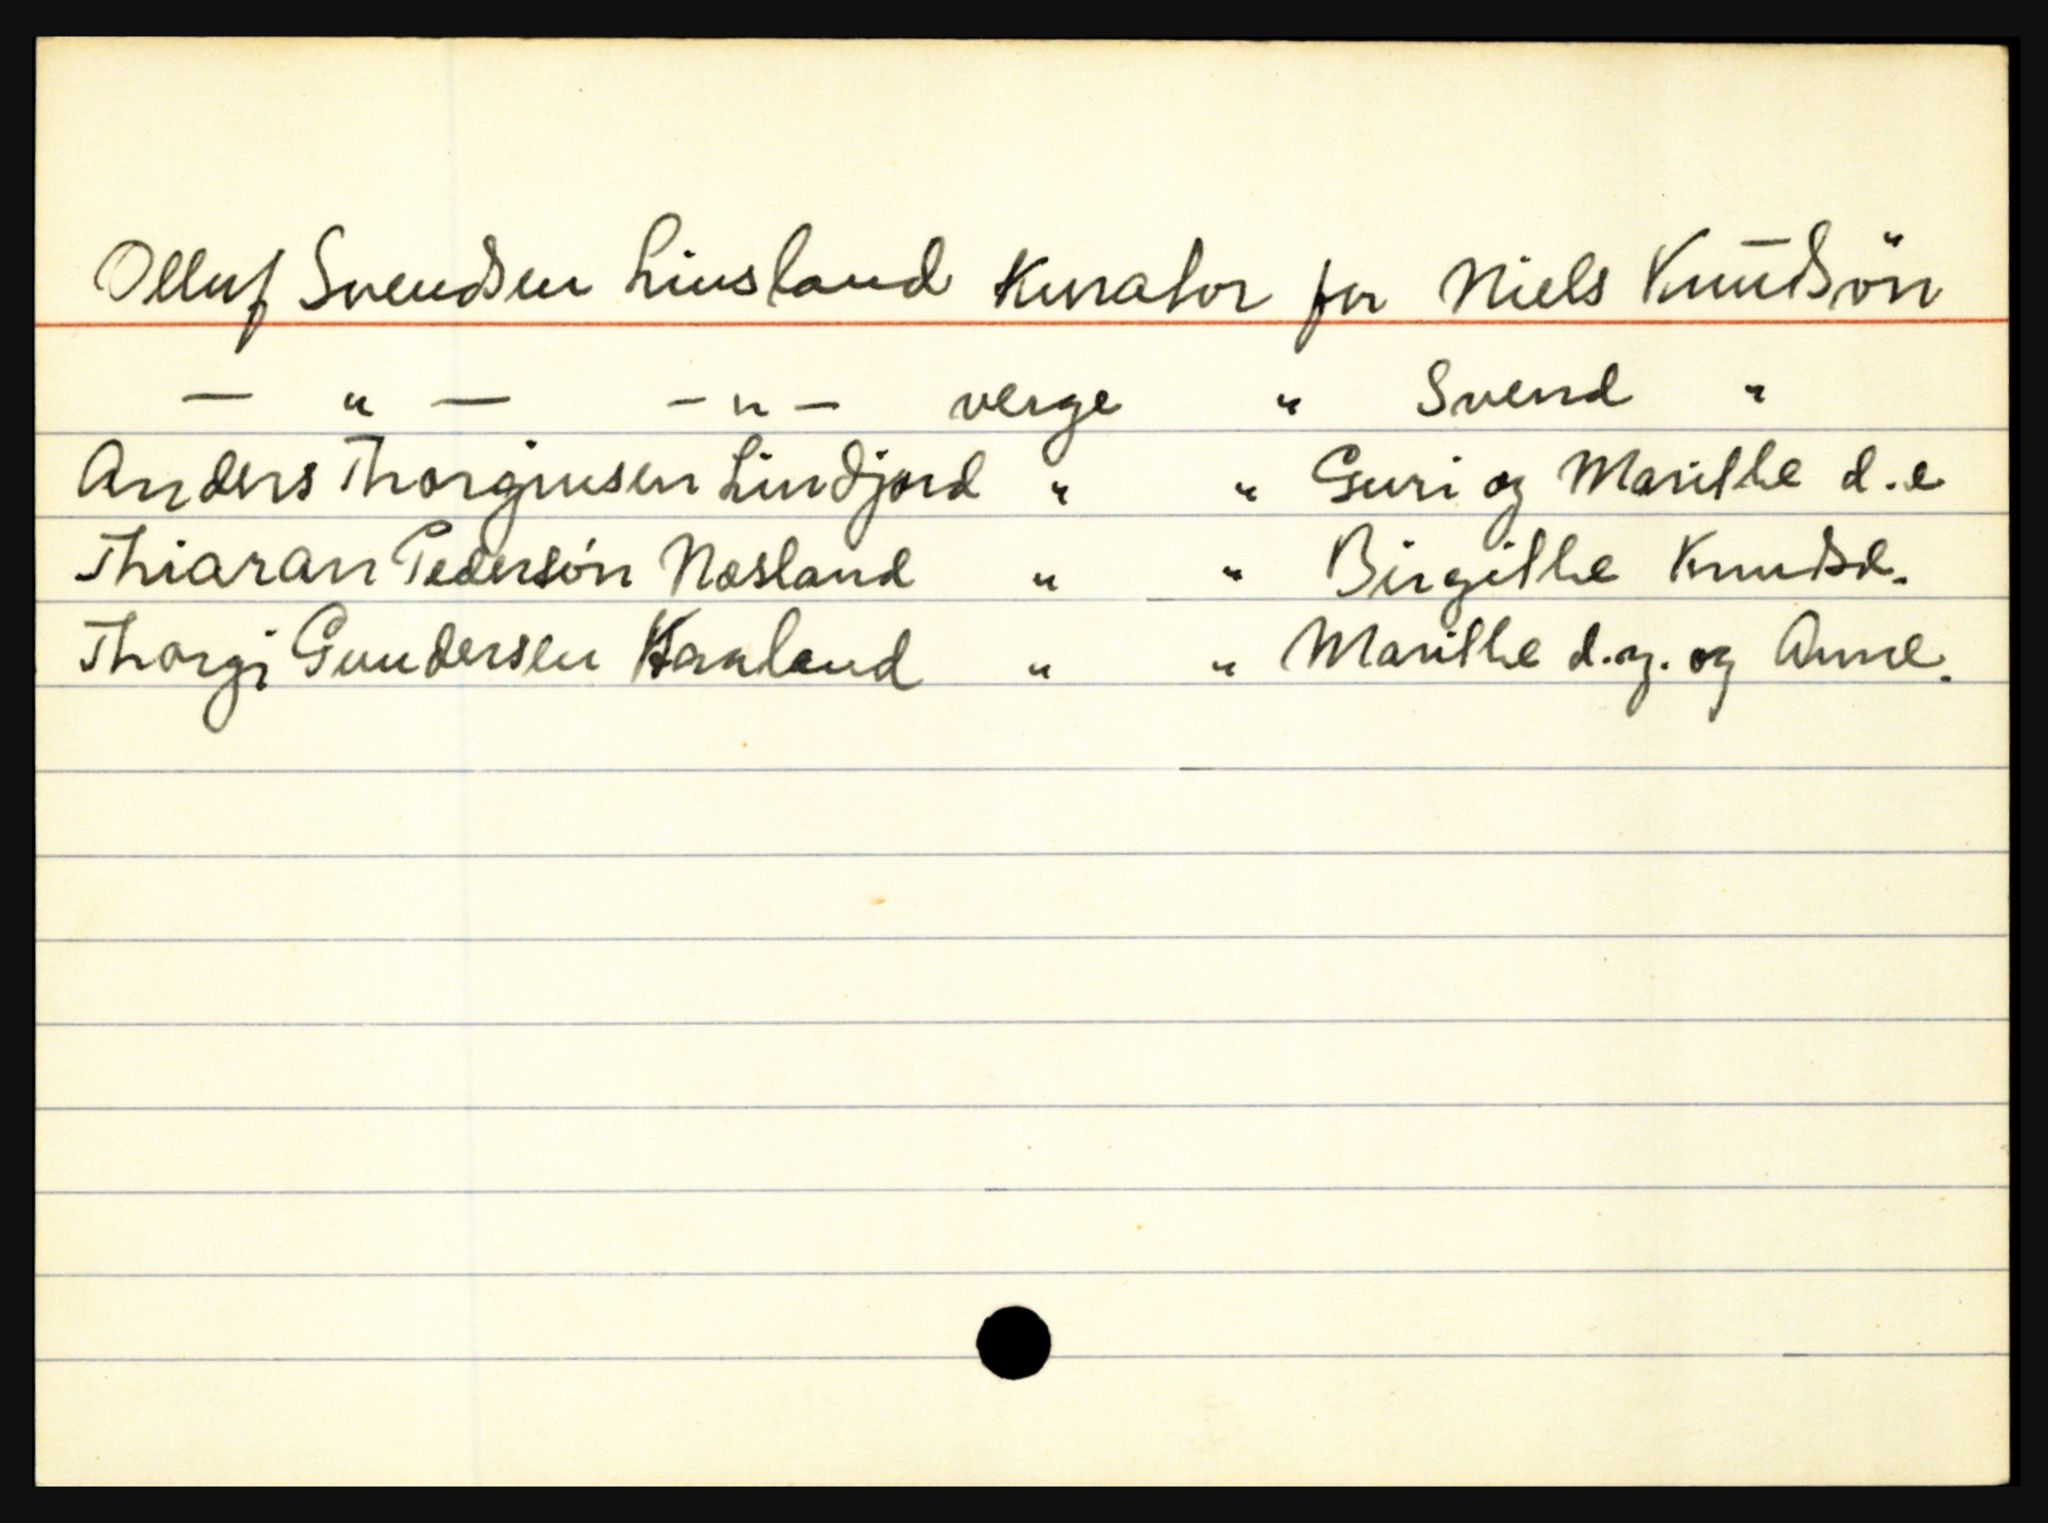 Olluf Svendsen Linsland Kurator for Niels Knudsön
— " — — " — verge " Svend "
Anders Thorgiusen Lindjord " " Guri og Marithe d.e
Thiaran Pedersón Nøsland " " Birgithe Knudsd.
Thorgi Gundersen " " Marithe d.y. og Anne.